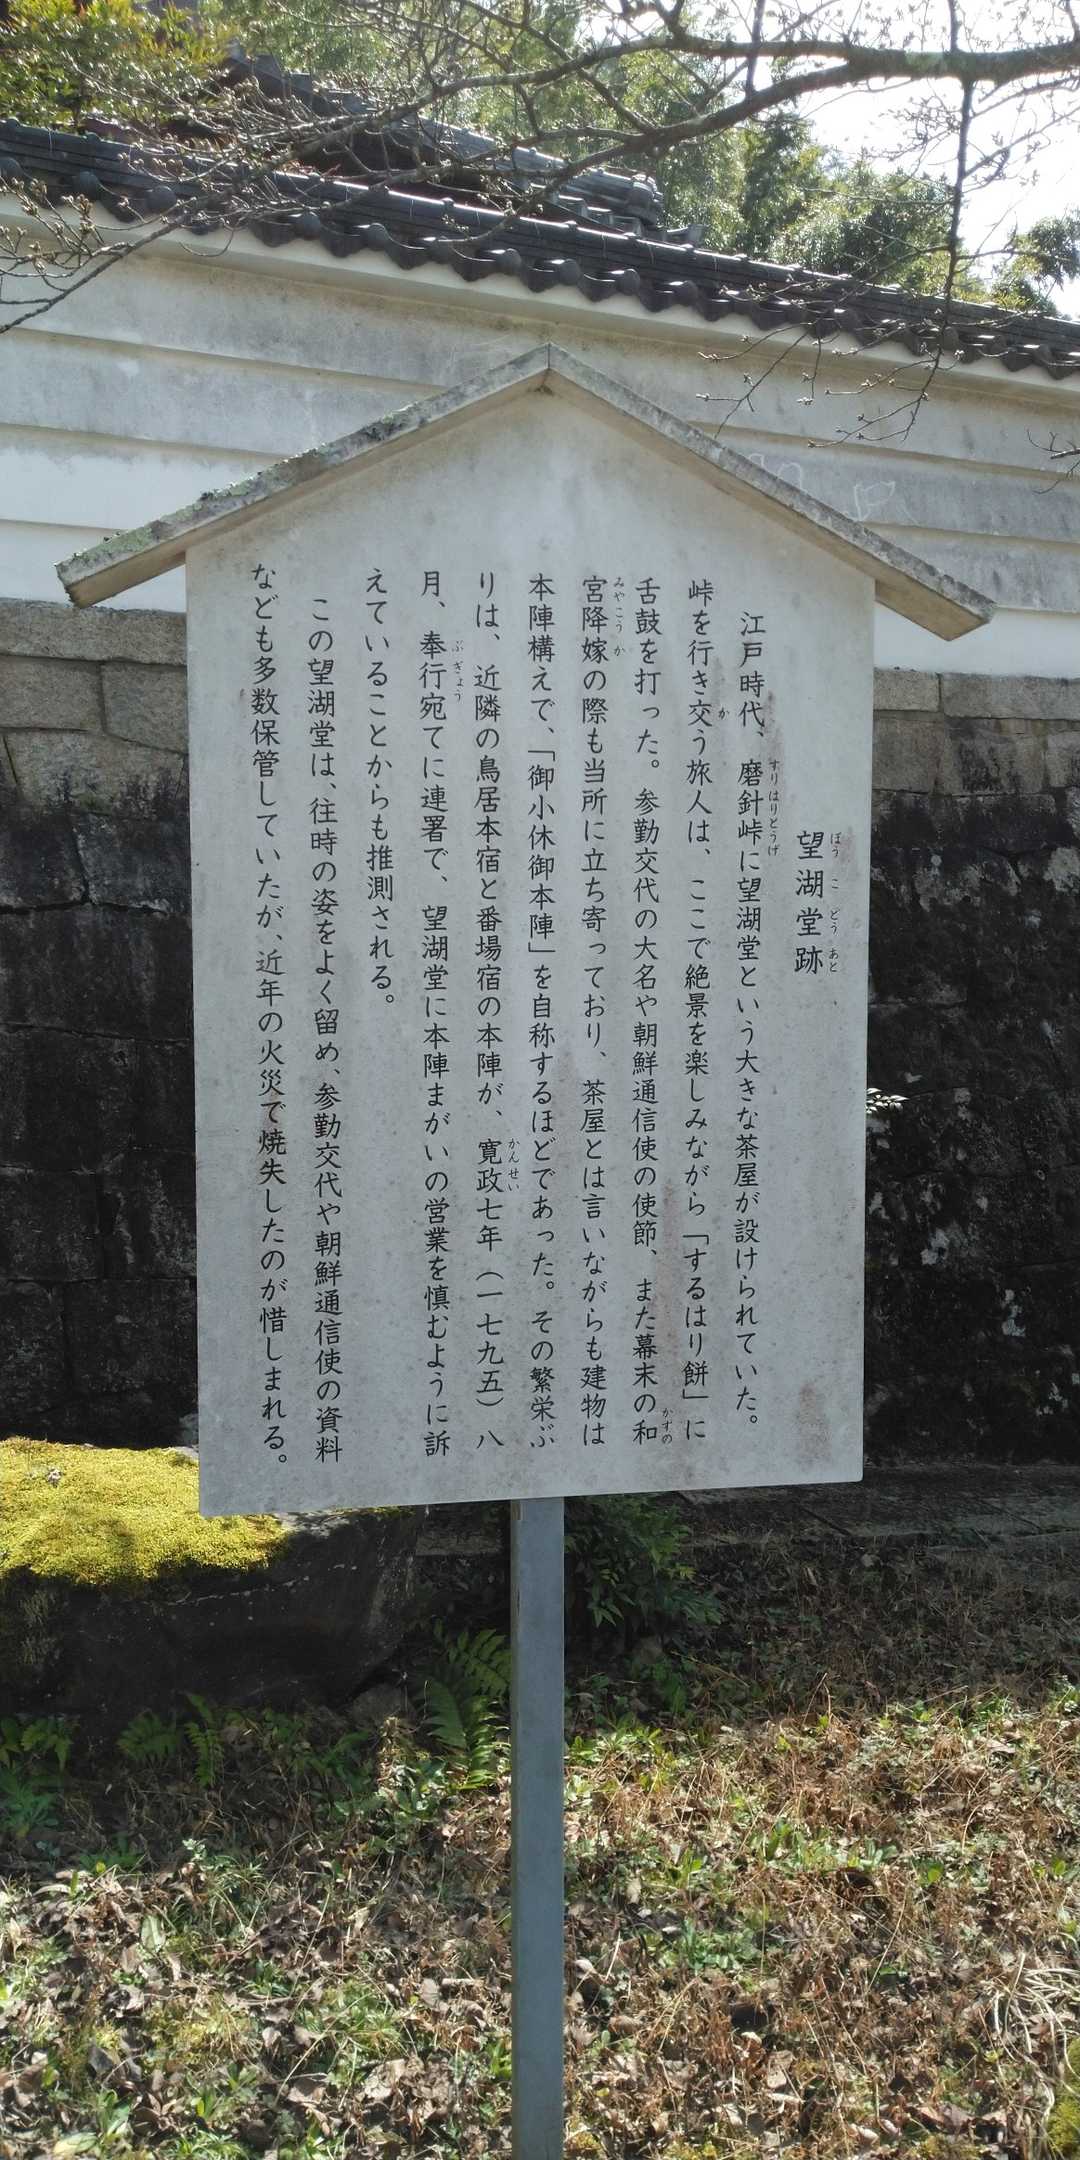 望湖堂跡
江戸時代、磨針峠に望湖堂という大きな茶屋が設けられていた。
峠を行き交う旅人は、ここで絶景を楽しみながら「するはり餅」に
舌鼓を打った。参勤交代の大名や朝鮮通信使の使節、また幕末の和
宮降嫁の際も当所に立ち寄っており、茶屋とは言いながらも建物は
本陣構えで、「御小休御本陣」を自称するほどであった。その繁栄ぶ
りは、近隣の鳥居本宿と番場宿の本陣が、寛政七年（一七九五）八
月、奉行宛てに連署で、望湖堂に本陣まがいの営業を慎むように訴
えていることからも推測される。
この望湖堂は、往時の姿をよく留め、参勤交代や朝鮮通信使の資料
なども多数保管していたが、近年の火災で焼失したのが惜しまれる。